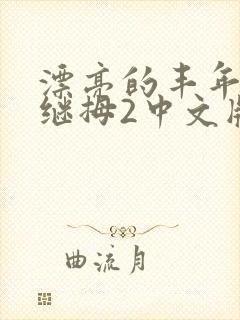 漂亮的丰年
继拇2中文版
曲流月